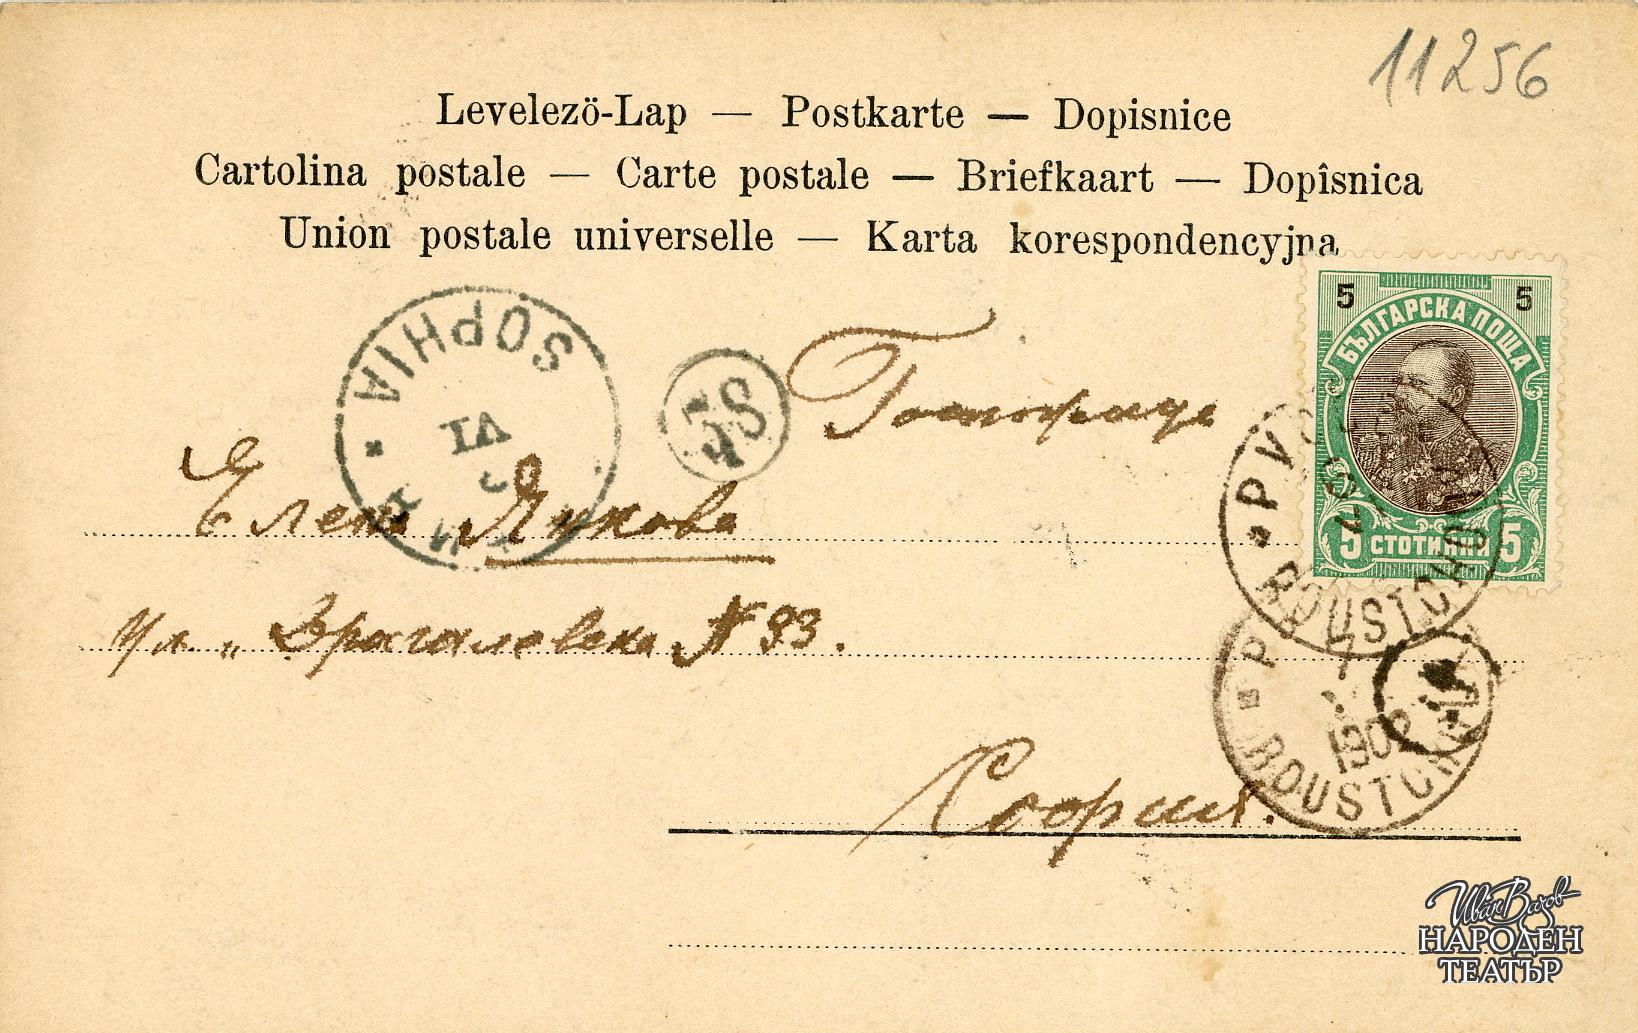 11256
Levelezö-Lap — Postkarte — Dopisnice
Cartolina postale — Carte postale — Briefkaart — Dopîsnica
Union postale universelle — Karta korespondencyjna
5 5
БЪЛГАРСКА ПОЩА
5 СТОТИНКИ 5
SOPHIA
VI
Госпожица
Елена Янкова
ул. „ Драгалевска № 93.
София.
РУС
ROUSTCHOUK
1902
ROUSTCH
Иван Вазов
НАРОДЕН
ТЕАТЪР